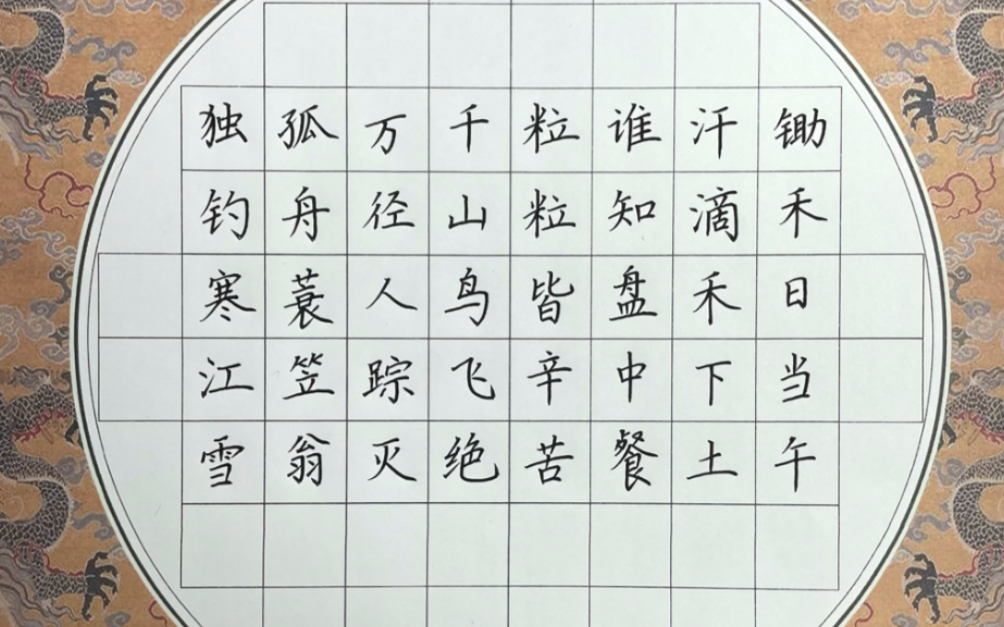 锄禾日当午
汗滴禾下土
谁知盘中餐
粒粒皆辛苦
千山鸟飞绝
万径人踪灭
孤舟蓑笠翁
独钓寒江雪